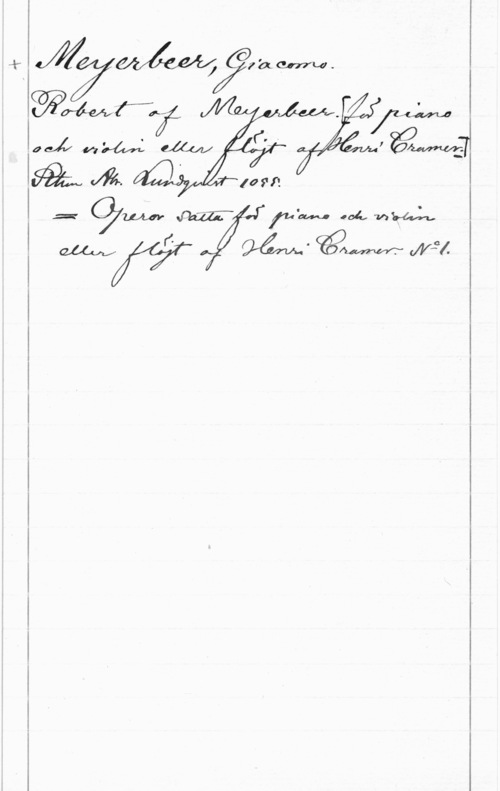 + Meyerbeer, Giacomo.
Robert af Meyerbeer. [för piano
och violin eller flöjt af Henri Cramer.]
Sthm Abr. Lundquist 1088.
= Operor satta för piano och violin
eller flöjt af Henri Cramer. Nº 1.